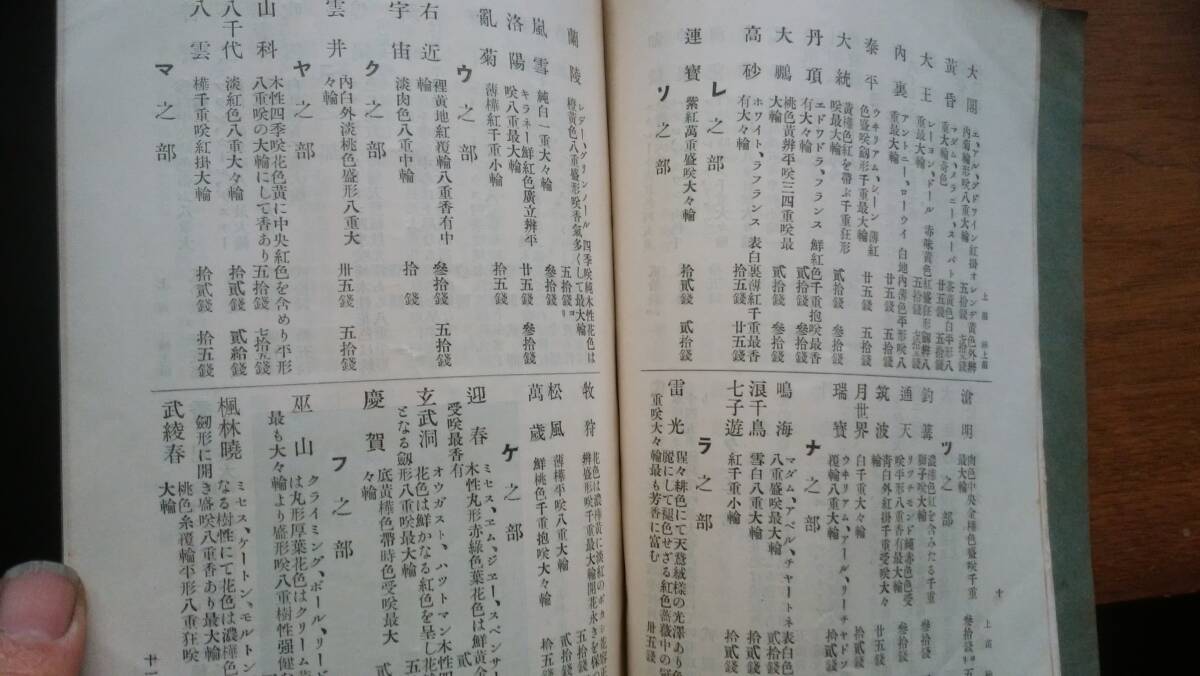 上苗 特上苗
大閣 エ、アル、グドウイン紅掛オレンヂ黄色外辨
內菊輪形咲八重大輪 五拾錢 七拾錢
黃昏 マダム、メラニー、スーパト茶黃色白平形八
重大輪 廿五錢 五拾錢
大王 レーヨン、ドール 赤味黃色紅盛狂形劔辨八
重最大輪 五拾錢 七拾錢
內裏 アントニー、ローウイ 白地內薄色平形咲八
重最大輪 廿五錢 五拾錢
泰平 ウキリアム、シーン 薄紅
色盛咲劔形千重最大輪 廿五錢 五拾錢
大統 黃樺色紅を帶ぶ千重狂形
咲最大輪 貳拾錢 參拾錢
丹頂 エドワドラ、フランス 鮮紅色千重抱咲最香
有大々輪 貳拾錢 參拾錢
大鵬 桃色黃辨平咲三四重咲最
大輪 拾五錢 貳拾錢
高砂 ホワイト、ラフランス 表白裏薄紅千重最香
有大々輪 拾五錢 廿五錢
レ之部
連寶 紫紅萬重盛咲大々輪 拾貳錢 貳拾錢
ソ之部
十
上苗
滄明 肉色中央金樺色盛咲千重
最大輪 參拾錢
ツ之部
釣篝 濃樺色紅を含みたる千重
獅子咲大輪 參拾錢
通天 リツチモンド純赤色色受
咲平形八重香有最大輪 參拾錢
筑波 靑白外紅掛千重受咲大々
輪 廿五錢
月世界 白千重大々輪 拾貳錢
瑞寶 ウキリアム、アール、リーチャドソ
覆輪八重大輪 貳拾錢
ナ之部
鳴海 マダム、アベル、チャートネ 表白色
八重盛咲最大輪 拾貳錢
浪千鳥 雪白八重大輪 拾五錢
七子遊 紅千重小輪 拾貳錢
ラ之部
雷光 猩々緋色にて天鵞絨樣の光澤あり
麗にして褪色せざる紅色薔薇中の
重咲大々輪最も芳香に富む 卅五錢
蘭陵 レダー、グリンノール 四季咲純木性花色は
橙黃色八重盛形咲香氣多くして最大輪
五拾錢ヨリ
嵐雪 純白一重大々輪 參拾錢
洛陽 キラネー鮮紅色廣立辨平
咲八重最大輪 廿五錢 參拾錢
亂菊 薄樺紅千重小輪 拾五錢 貳拾錢
ウ之部
右近 裡黃地紅覆輪八重香有中
輪 參拾錢 五拾錢
宇宙 淡肉色八重中輪 拾錢
ク之部
雲井 內白外淡桃色盛形八重大
々輪 卅五錢 五拾錢
ヤ之部
山科 木性四季咲花色黃に中央紅色を含めり平形
八重咲の大輪にして香あり 五拾錢 七拾五錢
八千代 淡紅色八重大々輪 拾貳錢 貳給錢
八雲 樺千重咲紅掛大輪 拾貳錢 拾五錢
マ之部
牧狩 花色は濃樺黃に淡紅のボカシ
辨盛形咲千重最大輪開花永きを保
五拾錢
松風 薄樺平咲八重大輪 貳拾錢
萬歲 鮮桃色千重抱咲大々輪 拾五錢
ケ之部
迎春 ミセス、エム、ジエー、スペンサ
木性丸形赤綠色葉花色は鮮黃金
受咲最香有
玄武洞 オウガスト、ハツトマン木性四
花色は鮮かなる紅色を呈し花
となる劔形八重咲最大輪
慶賀 底黃樺色帶時色受咲最大
々輪
フ之部
巫山 クライミング、ポール、リード
は丸形厚葉花色はクリーム
最も大々輪より盛形咲八重樹性强健
楓林曉 ミセス、ケートン、モルトン
なる樹性にて花色は濃樺色
劔形に開き盛咲八重香あり最大輪
武綾春 桃色糸覆輪平形八重狂咲
大輪
十一